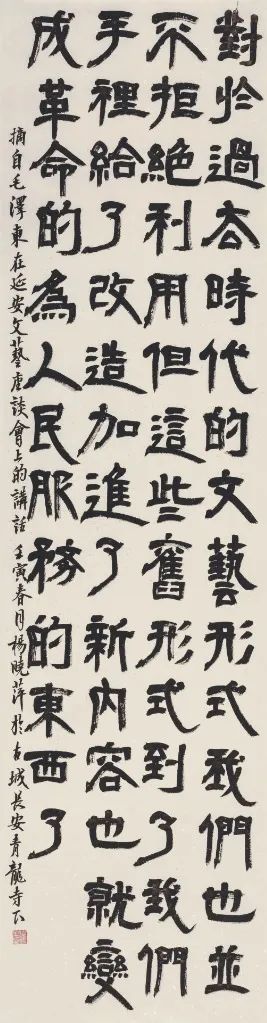 對於過去時代的文藝形式我們也並
不拒絕利用但這些舊形式到了我們
手裡給了改造加進了新內容也就變
成革命的為人民服務的東西了
摘自毛澤東在延安文藝座談會上的講話 壬寅春月楊曉萍於古城長安青龍寺下